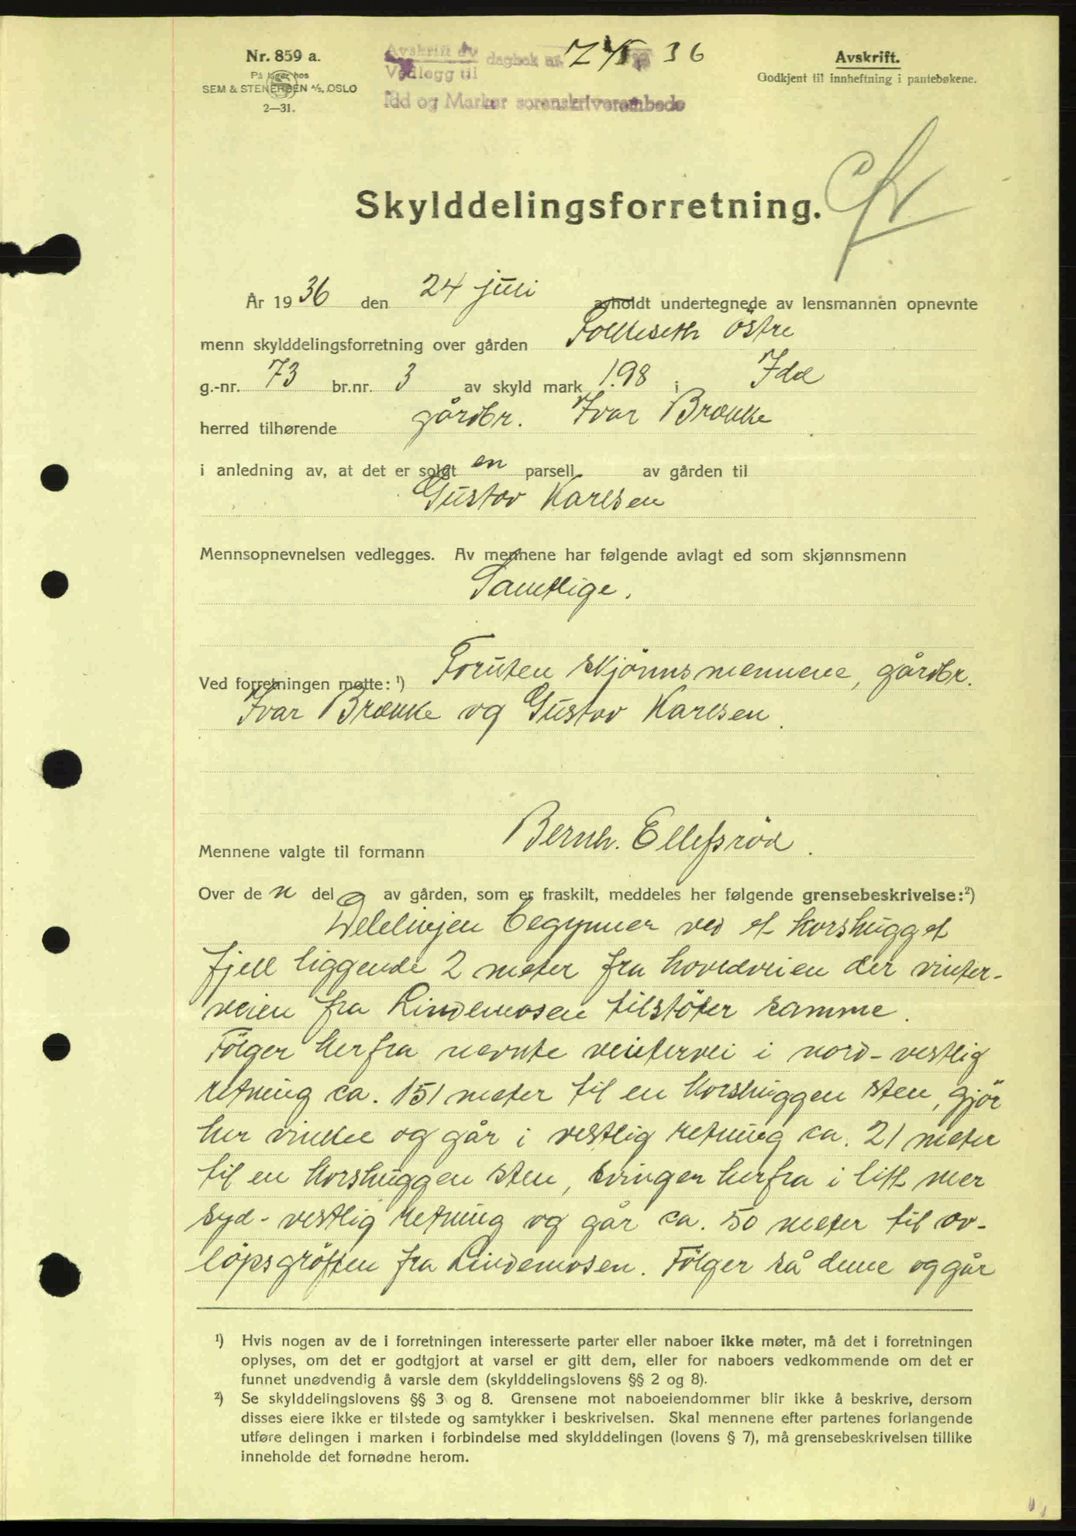 Nr. 859 a.
På lager hos
SEM & STENERSEN A/S, OSLO
2—31.
Avskrift av
Vedlegg til dagbok nr. 36
Idd og Marker sorenskriverembede
Avskrift.
Godkjent til innheftning i pantebøkene.
Skylddelingsforretning.
År 1936 den 24 juli avholdt undertegnede av lensmannen opnevnte
menn skylddelingsforretning over gården Folkeseth östre
g.-nr. 73 br.nr. 3 av skyld mark 1.98 i Idd
herred tilhørende gårdbr. Ivar Brække
i anledning av, at det er solgt en parsell av gården til
Gustav Karlsen
Mennsopnevnelsen vedlegges. Av mennene har følgende avlagt ed som skjønnsmenn
Samtlige.
Ved forretningen møtte: ¹) Foruten skjönnsmennene, gårdbr.
Ivar Brække og Gustav Karlsen.
Mennene valgte til formann Bernh. Ellefsröd.
Over den del av gården, som er fraskilt, meddeles her følgende grensebeskrivelse: ²)
Delelinjen begynner ved et korshugget
fjell liggende 2 meter fra hovedveien der vinter-
veien fra Lindemosen tilstöter samme.
Fölger herfra nevnte veintervei i nord-vestlig
retning ca. 151 meter til en korshuggen sten, gjör
her vinkel og går i vestlig retning ca. 21 meter
til en korshuggen sten, svinger herfra i litt mer
syd-vestlig retning og går ca. 50 meter til av-
löpsgröften fra Lindemosen. Fölger så denne og går
¹) Hvis nogen av de i forretningen interesserte parter eller naboer ikke møter, må det i forretningen
oplyses, om det er godtgjort at varsel er gitt dem, eller for naboers vedkommende om det er
funnet unødvendig å varsle dem (skylddelingslovens §§ 2 og 8).
²) Se skylddelingslovens §§ 3 og 8. Grensene mot naboeiendommer blir ikke å beskrive, dersom
disses eiere ikke er tilstede og samtykker i beskrivelsen. Skal mennene efter partenes forlangende
utføre delingen i marken i forbindelse med skylddelingen (lovens § 7), må grensebeskrivelsen tillike
inneholde det fornødne herom.